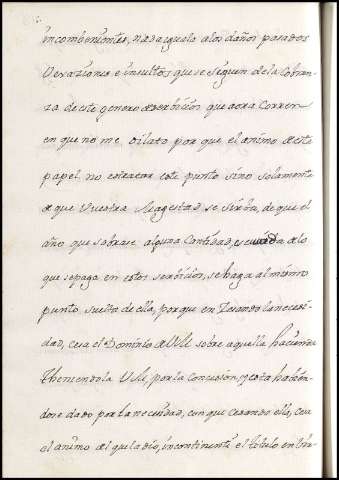 incombenientes, nada iguala a los daños pasados
Vexaciones e insultos que se siguen de la Cobran-
za de este genero de serbicios que aora Corren
en que no me dilato por que el animo de este
papel no es tratar este punto sino solamente
de que Vuestra Magestad se sirba, de que el
año que sobrare alguna Cantidad, de lo
que se paga en estos serbicios, se haga al mismo
punto, suelta de ella, porque en Zesando la necesi-
dad, cesa el Dominio de VM sobre aquella hacienda
theniendola VM, por la Concesion, y esta habien-
dose dado por la necesidad, con que cesando ella, cesa
el animo del que la dio, incontinenti el titulo en Vir-